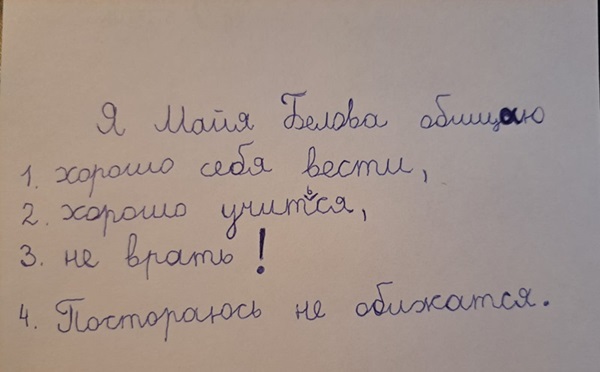 Я Майя Белова обищаю
1. хорошо себя вести,
2. хорошо учиться,
3. не врать!
4. Постораюсь не обижатся.